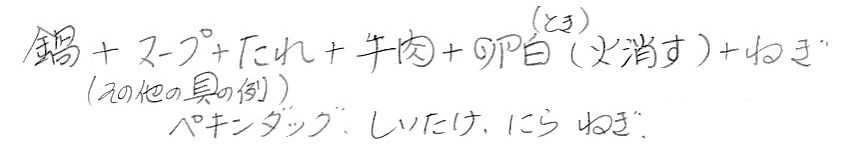 (とき)
鍋+スープ+たれ+牛肉+卵白(火消す)+ねぎ
(その他の具の例)
ペキンダッグ、しいたけ、にら ねぎ、